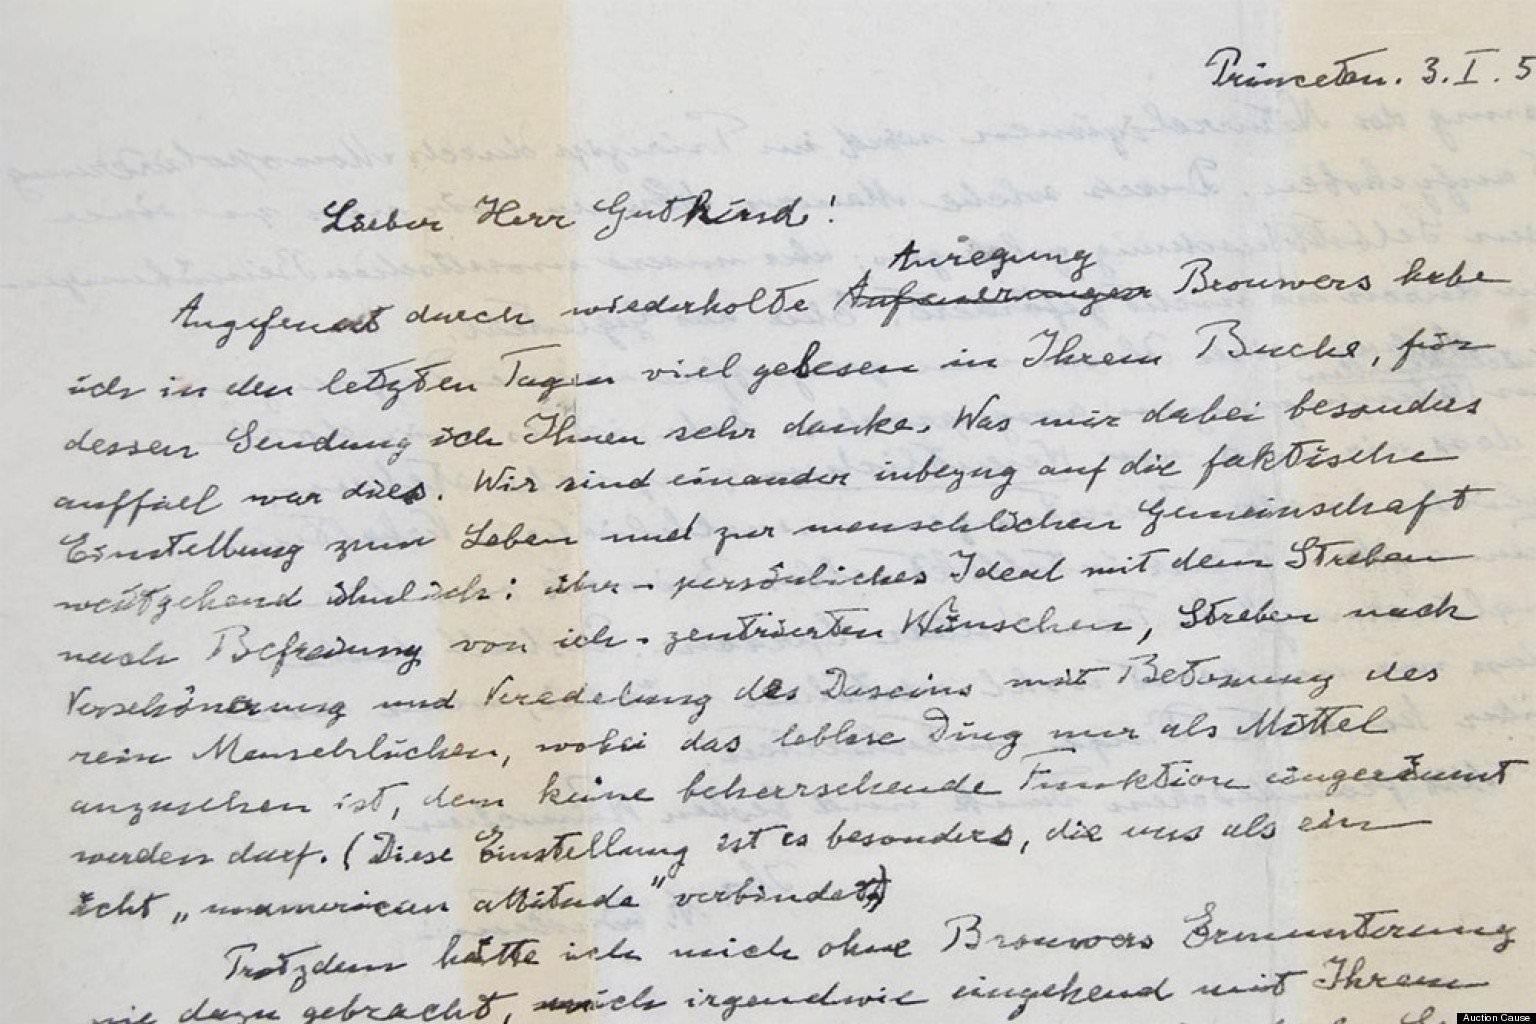 Princeton. 3. I. 5
Lieber Herr Gutkind!
Anregung
Angefeuert durch wiederholte Aufeuerungen Brouwers habe
ich in den letzten Tagen viel gelesen in Ihrem Buche, für
dessen Sendung ich Ihnen sehr danke. Was mir dabei besonders
auffiel war dies. Wir sind einander inbezug auf die faktische
Einstellung zum Leben und zur menschlichen Gemeinschaft
weitgehend ähnlich: über-persönliches Ideal mit dem Streben
nach Befreiung von ich-zentrierten Wünschen, Streben nach
Verschönerung und Veredelung des Daseins mit Betonung des
rein Menschlichen, wobei das leblose Ding nur als Mittel
anzusehen ist, dem keine beherrschende Funktion eingeräumt
werden darf. (Diese Einstellung ist es besonders, die uns als ein
ächt „unamerican attitude" verbindet)
Trotzdem hätte ich mich ohne Brouwers Ermunterung
nie dazu gebracht, mich irgendwie eingehend mit Ihrem
Auction Cause